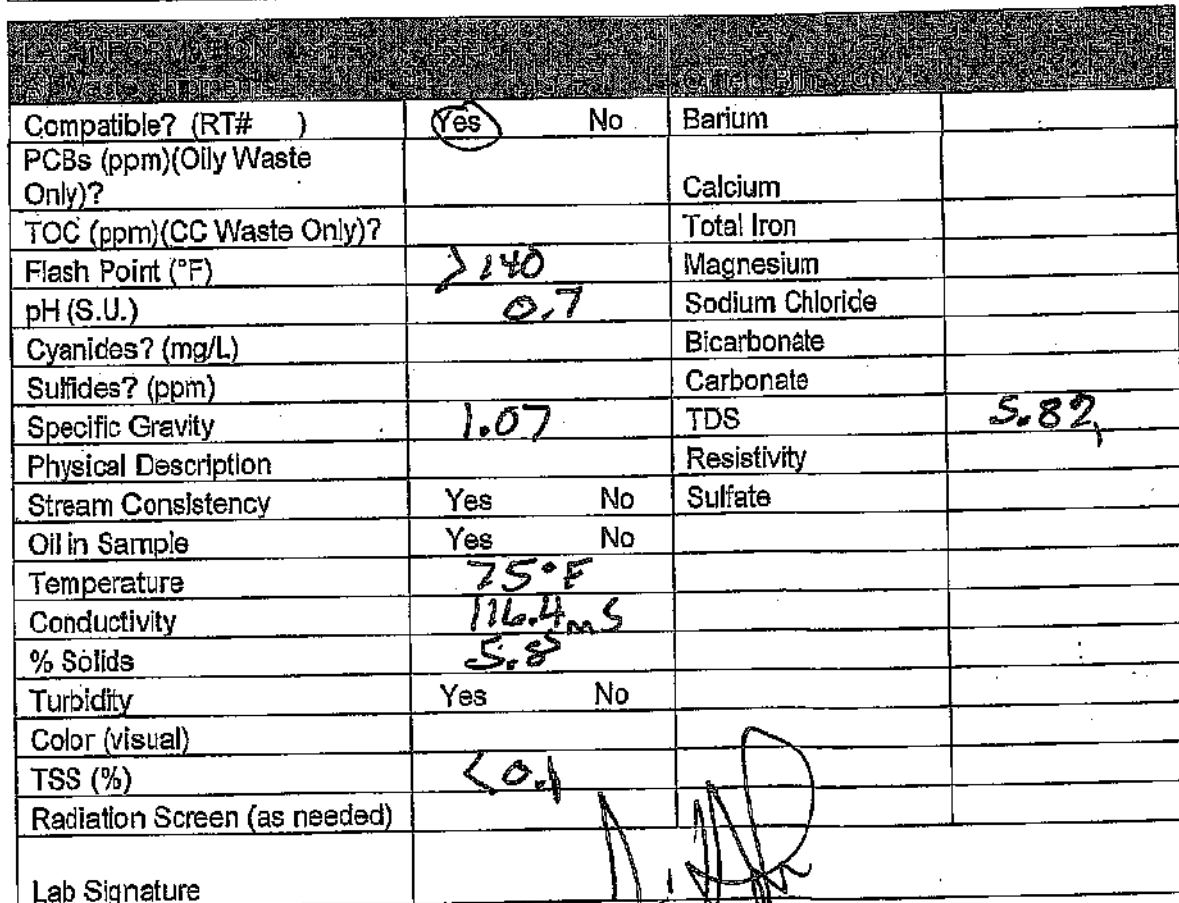 LAB INFORMATION
Compatible? (RT# ) Yes No Barium
PCBs (ppm)(Oily Waste
Only)? Calcium
TOC (ppm)(CC Waste Only)? Total Iron
Flash Point (°F) >140 Magnesium
pH (S.U.) 0.7 Sodium Chloride
Cyanides? (mg/L) Bicarbonate
Sulfides? (ppm) Carbonate
Specific Gravity 1.07 TDS 5.82
Physical Description Resistivity
Stream Consistency Yes No Sulfate
Oil in Sample Yes No
Temperature 75°F
Conductivity 116.4 mS
% Solids 5.8
Turbidity Yes No
Color (visual)
TSS (%) <0.1
Radiation Screen (as needed)
Lab Signature